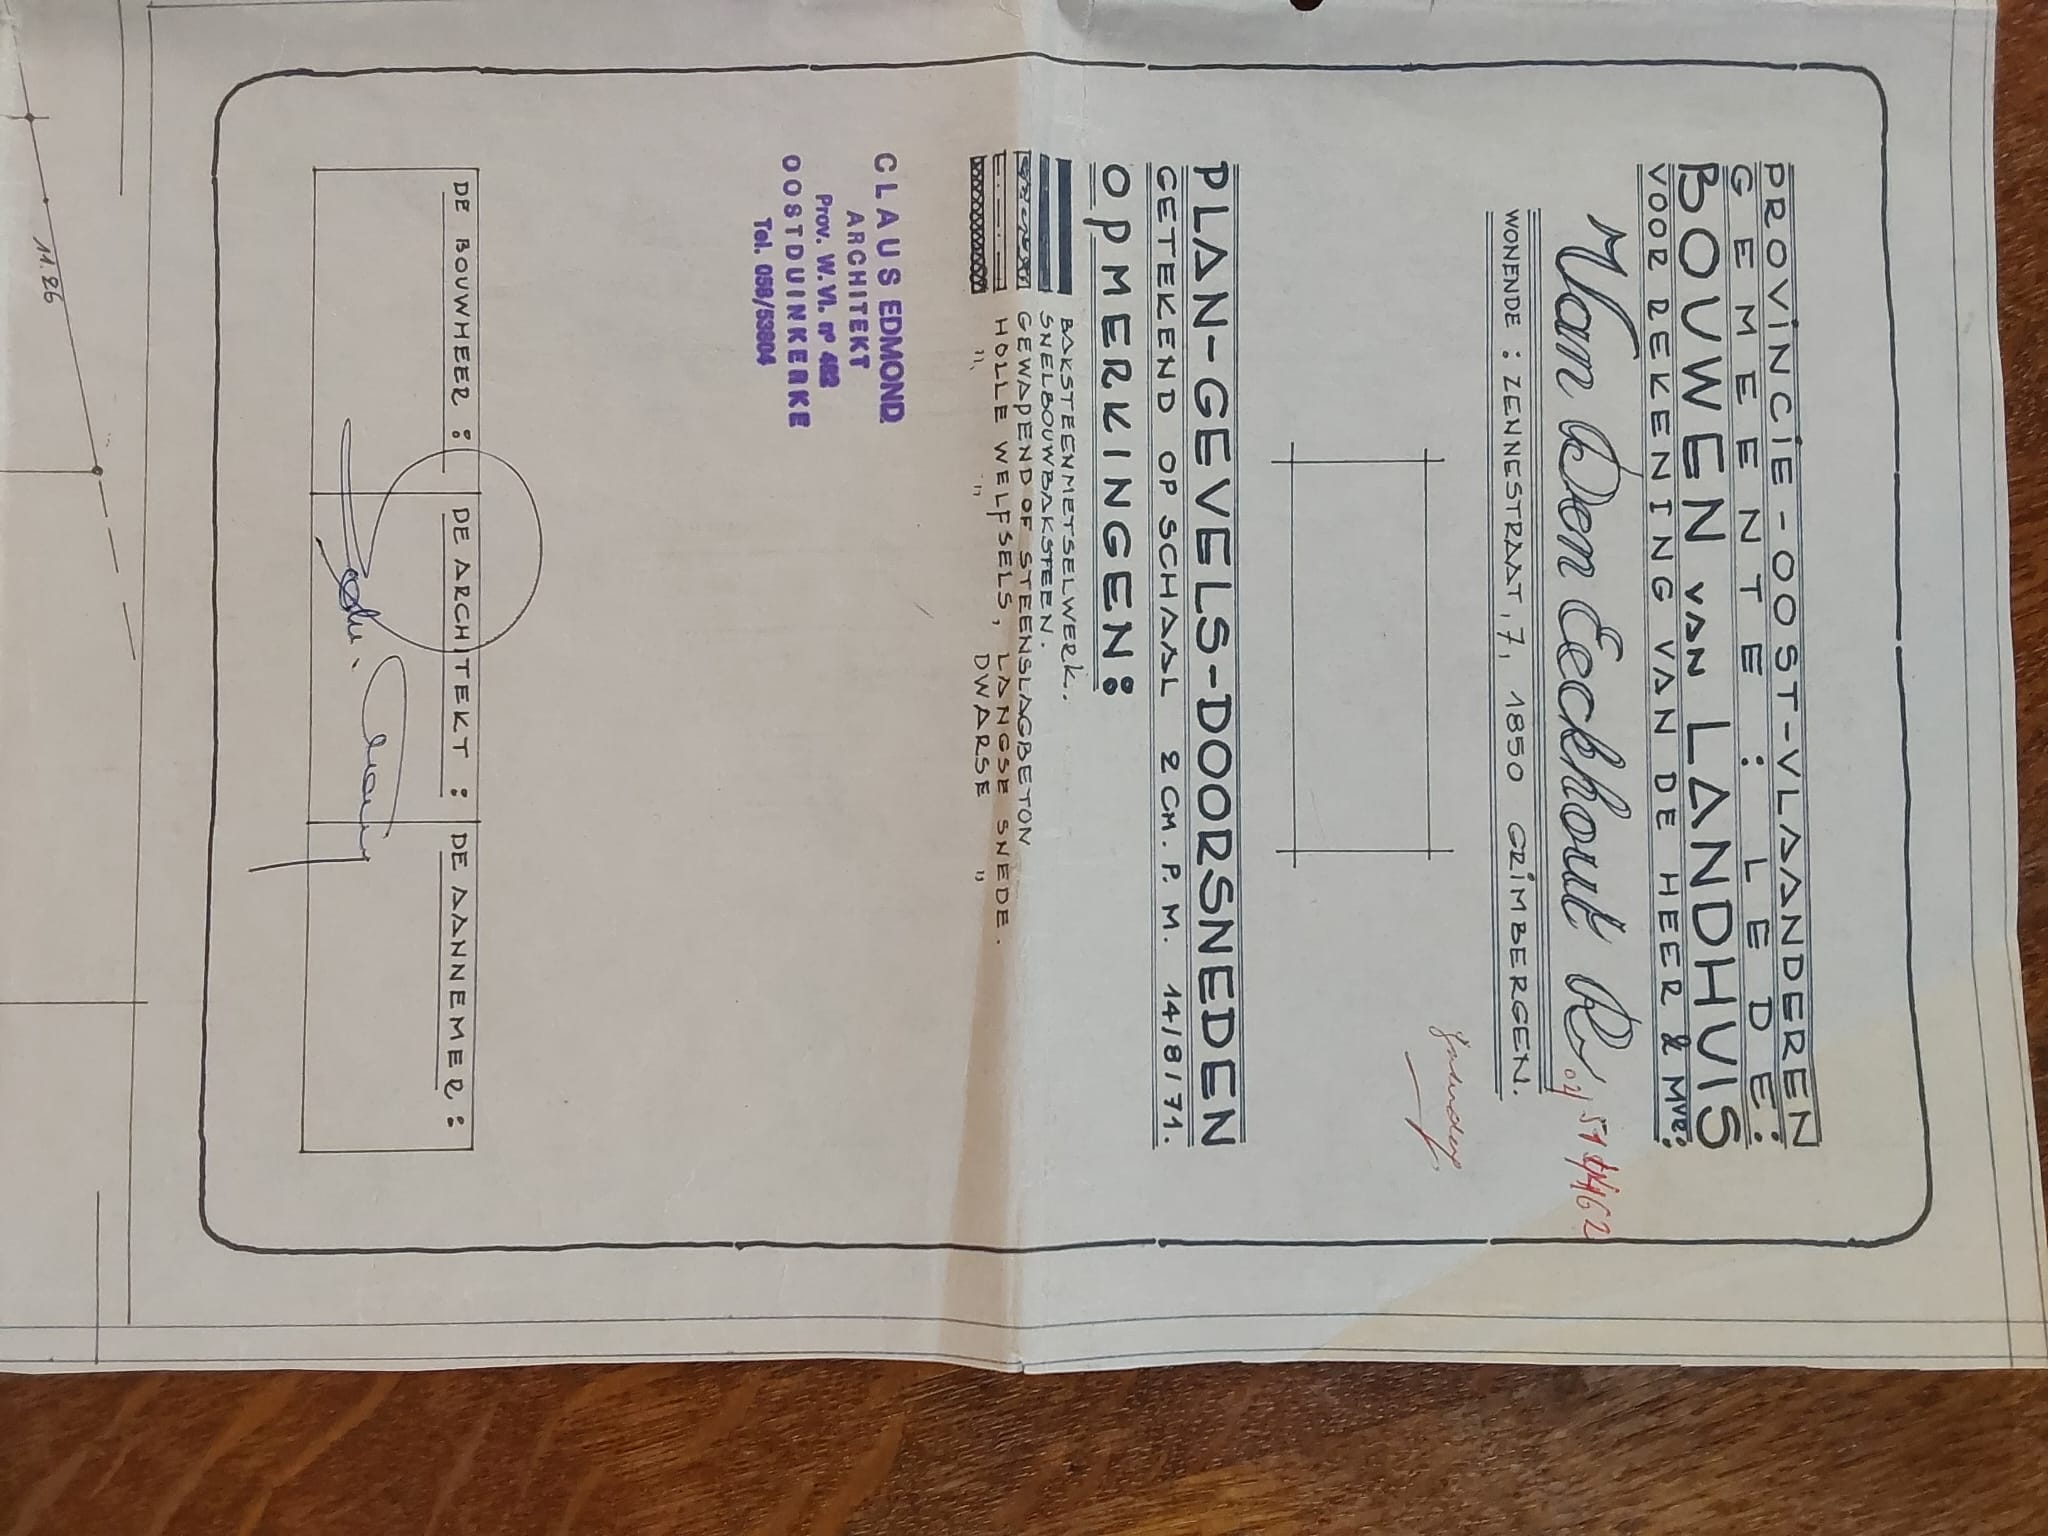 PROVINCIE-OOST-VLAANDEREN
GEMEENTE: LEDE:
BOUWEN VAN LANDHUIS
VOOR REKENING VAN DE HEER & MVR:
Van Den Eeckhout R
WONENDE: ZENNESTRAAT, 7, 1850 GRIMBERGEN.
PLAN-GEVELS-DOORSNEDEN
GETEKEND OP SCHAAL 2 CM. P. M. 14/8/71.
OPMERKINGEN:
BAKSTEENMETSELWERK.
SNELBOUWBAKSTEEN.
GEWAPEND OF STEENSLAGBETON
HOLLE WELFSELS, LANGSE SNEDE.
" " , DWARSE "
CLAUS EDMOND
ARCHITEKT
Prov. W.Vl. nº 482
OOSTDUINKERKE
Tel. 058/53804
DE BOUWHEER: DE ARCHITEKT: DE AANNEMER:
11.26